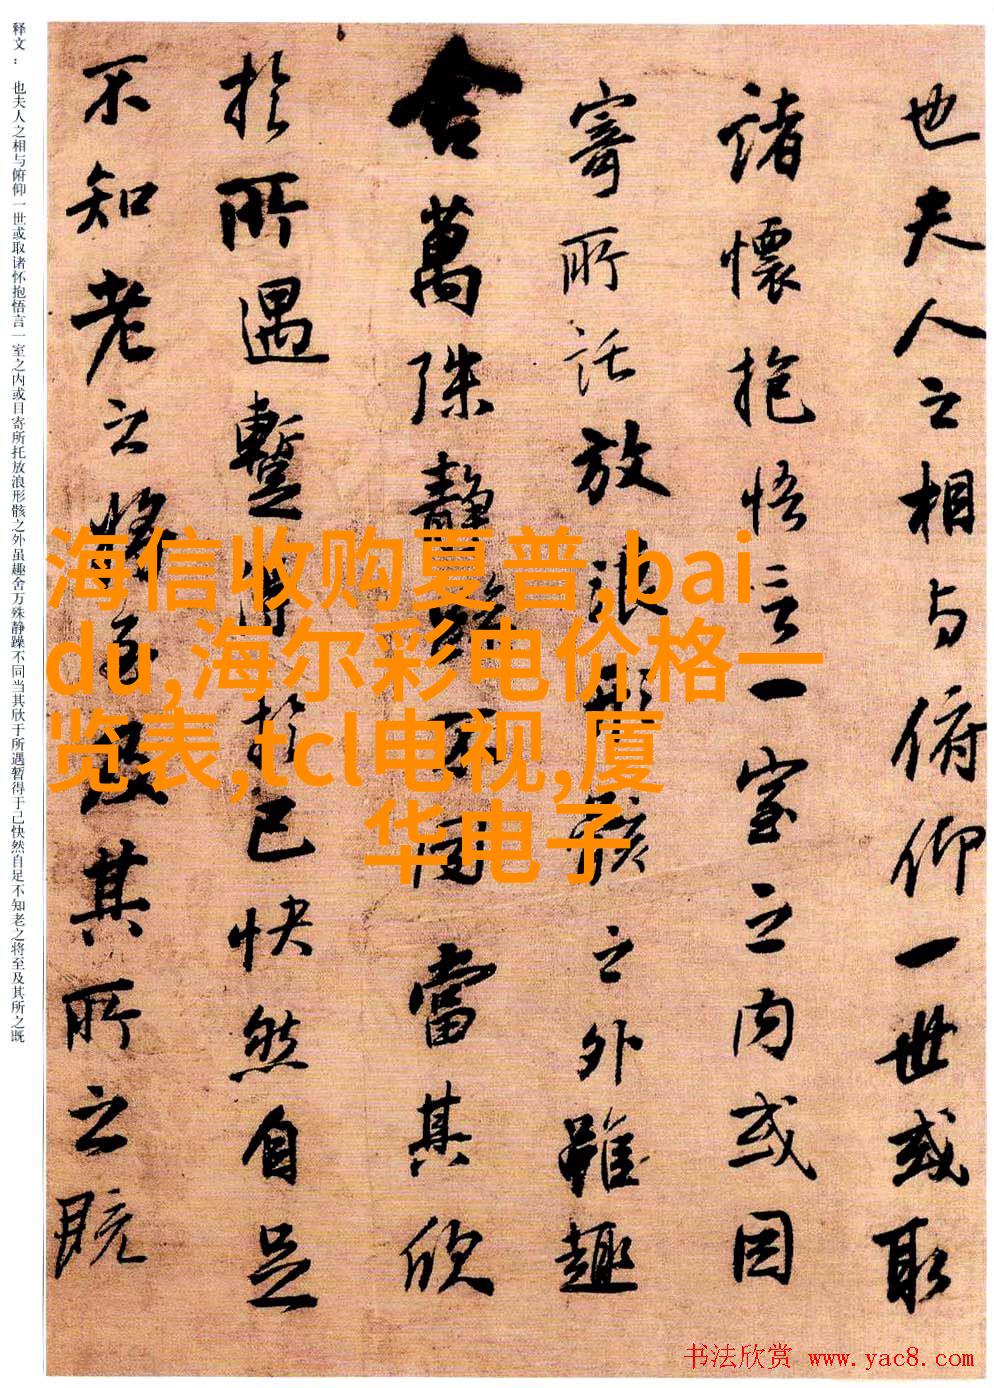 也夫人之相与俯仰一世或取
諸懷抱悟言一室之内或因
寄所託放浪形骸之外雖趣
舍萬殊静躁不同當其欣
於所遇蹔得於己快然自足
不知老之將至及其所之既
释文： 也夫人之相与俯仰一世或取诸怀抱悟言一室之内或目寄所托放浪形骸之外虽趣舍万殊静躁不同当其欣于所遇暂得于己快然自足不知老之将至及其所之既
海信收购夏普,bai
du,海尔彩电价格一
览表,tcl电视,厦
华电子
书法欣赏 www.yac8.com